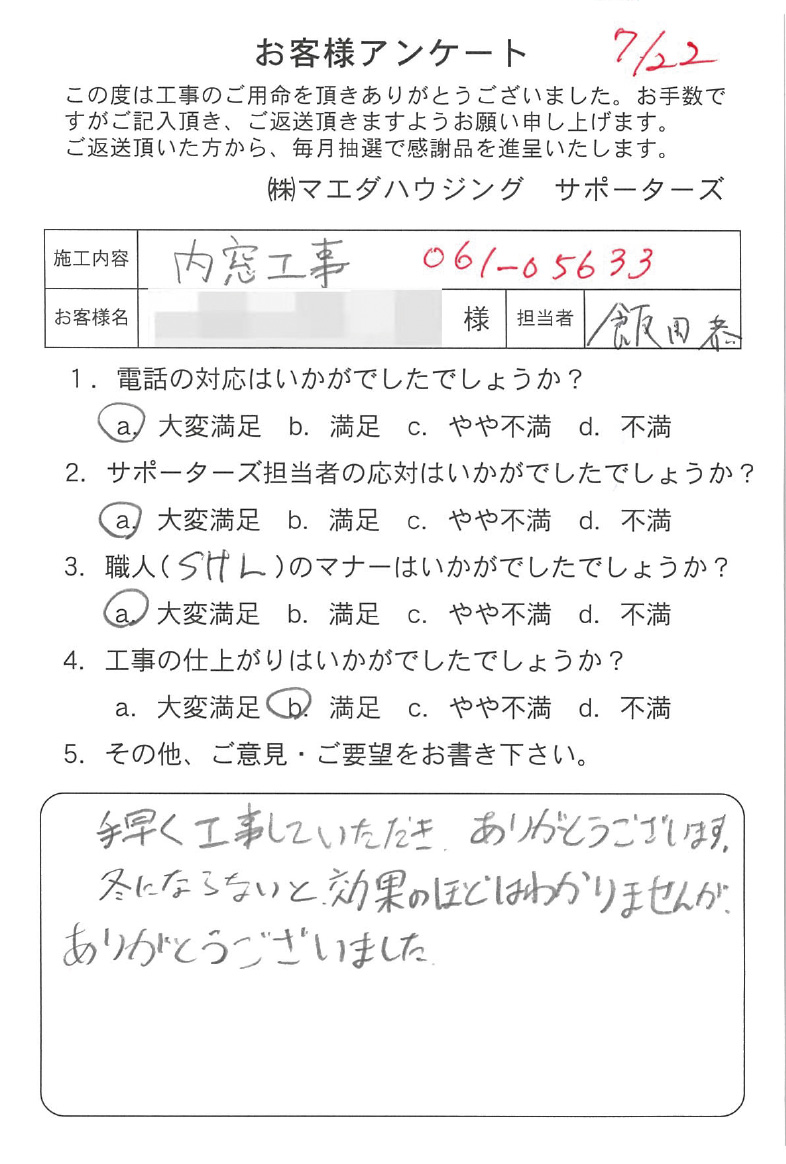 お客様アンケート 7/22
この度は工事のご用命を頂きありがとうございました。お手数で
すがご記入頂き、ご返送頂きますようお願い申し上げます。
ご返送頂いた方から、毎月抽選で感謝品を進呈いたします。
㈱マエダハウジング サポーターズ
施工内容 内窓工事 061-05633
お客様名 様 担当者 飯田恭
1. 電話の対応はいかがでしたでしょうか？
a. 大変満足 b. 満足 c. やや不満 d. 不満
2. サポーターズ担当者の応対はいかがでしたでしょうか？
a. 大変満足 b. 満足 c. やや不満 d. 不満
3. 職人(SHL)のマナーはいかがでしたでしょうか？
a. 大変満足 b. 満足 c. やや不満 d. 不満
4. 工事の仕上がりはいかがでしたでしょうか？
a. 大変満足 b. 満足 c. やや不満 d. 不満
5. その他、ご意見・ご要望をお書き下さい。
手早く工事していただき、ありがとうございます。
冬にならないと、効果のほどはわかりませんが、
ありがとうございました。